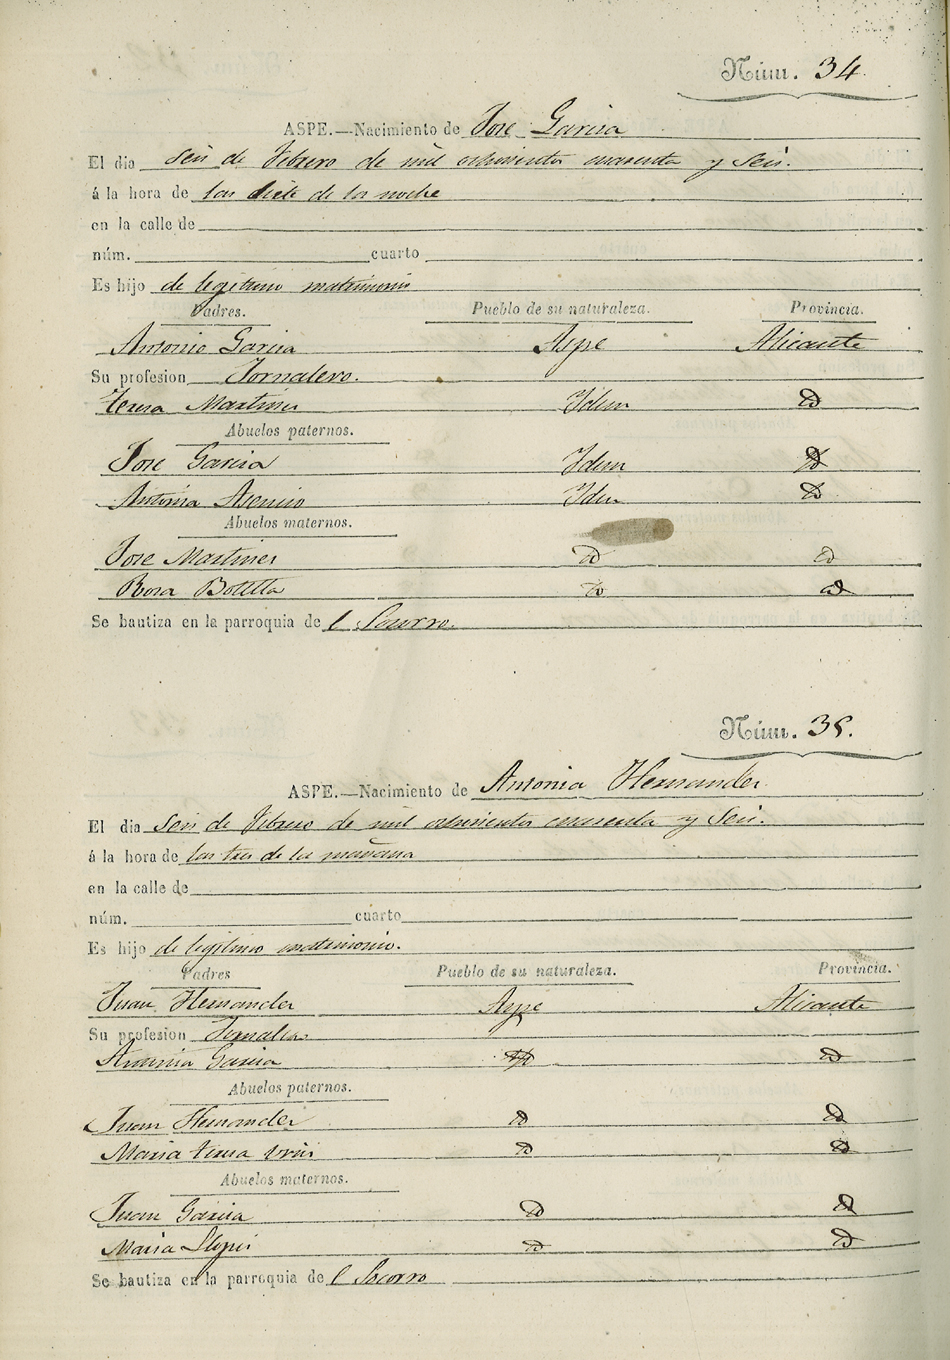 Núm. 34
ASPE.—Nacimiento de Jose Garcia
El dia seis de Febrero de mil ochocientos cuarenta y Seis.
á la hora de las siete de la noche
en la calle de
núm. cuarto
Es hijo de legitimo matrimonio
Padres. Pueblo de su naturaleza. Provincia.
Antonio Garcia Aspe Alicante
Su profesion Jornalero.
teresa Martines Idem id
Abuelos paternos.
Jose Garcia Idem id
Antonia Asencio Idem id
Abuelos maternos.
Jose Martines id id
Rosa Botella id id
Se bautiza en la parroquia de l Socorro.
Núm. 35.
ASPE.—Nacimiento de Antonia Hernandes
El dia Seis de Febrero de mil ochocientos cuarenta y Seis.
á la hora de las tres de la mañana
en la calle de
núm. cuarto
Es hijo de legitimo matrimonio.
Padres Pueblo de su naturaleza. Provincia.
Juan Hernandes Aspe Alicante
Su profesion Jornalero
Antonia Garcia id id
Abuelos paternos.
Juan Hernandes id id
Maria teresa id id
Abuelos maternos.
Juan Garcia id id
Maria Llopis id id
Se bautiza en la parroquia de l Socorro